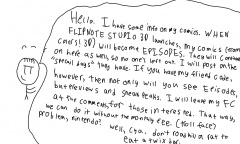 Hello. I have some info on my comics. WHEN
FLIPNOTE STUDIO 3D launches, my comics
3D) will become EPISODES. They will continue
on here as well, so no one's left out. I will post on the
"special days" they have. If you have my friend code,
however, then not only will you see Episodes,
but previews and sneak peeks. I will leave my FC
at the comments, for those interested. That way,
we can do it without the monthly fee. (troll face)
problem, nintendo?
Well, cya. don't roadkill a rat to
eat a twix bar.